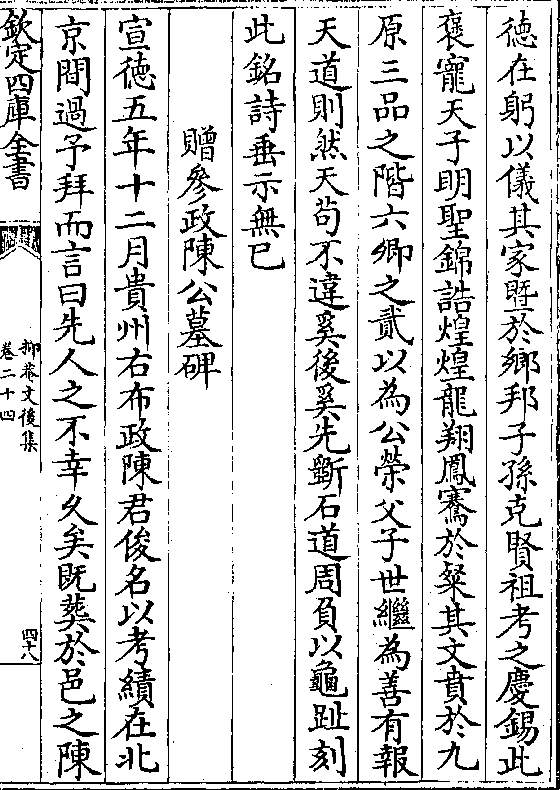 德在躬以儀其家暨於鄉邦子孫克賢祖考之慶錫此
褒寵天子明聖錦誥煌煌龍翔鳳騫於粲其文賁於九
原三品之階六卿之貳以為公榮父子世繼為善有報
天道則然天苟不違奚後奚先斵石道周負以龜趾刻
此銘詩垂示無已
贈參政陳公墓碑
宣德五年十二月貴州右布政陳君俊名以考績在北
京間過予拜而言曰先人之不幸久矣既葬於邑之陳
欽定四庫全書
抑菴文後集
卷二十四
四十八